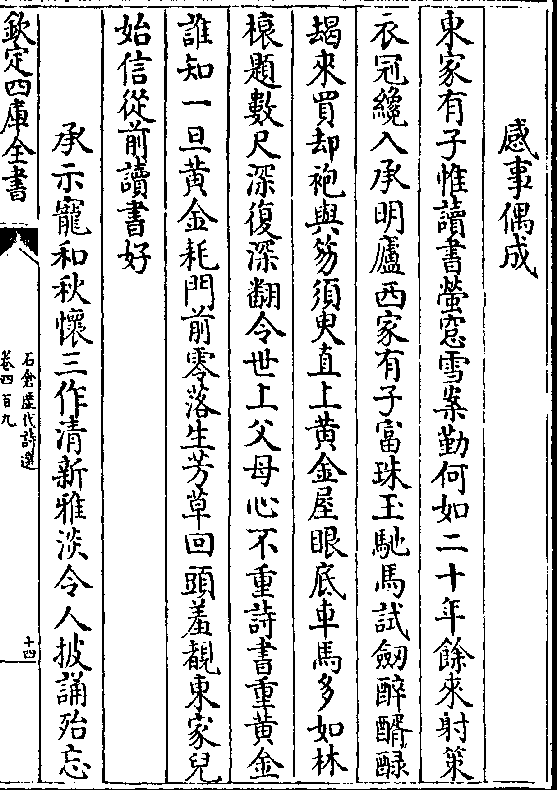 感事偶成
東家有子惟讀書螢窓雪案勤何如二十年餘來射策
衣冠纔入承明廬西家有子富珠玉馳馬試劒醉醽醁
朅來買却袍與笏須臾直上黄金屋眼底車馬多如林
榱題數尺深復深翻令世上父母心不重詩書重黄金
誰知一旦黄金耗門前零落生芳草回頭羞覩東家兒
始信從前讀書好
承示寵和秋懷三作清新雅淡令人披誦殆忘
欽定四庫全書
石倉歴代詩選
卷四百九
十四